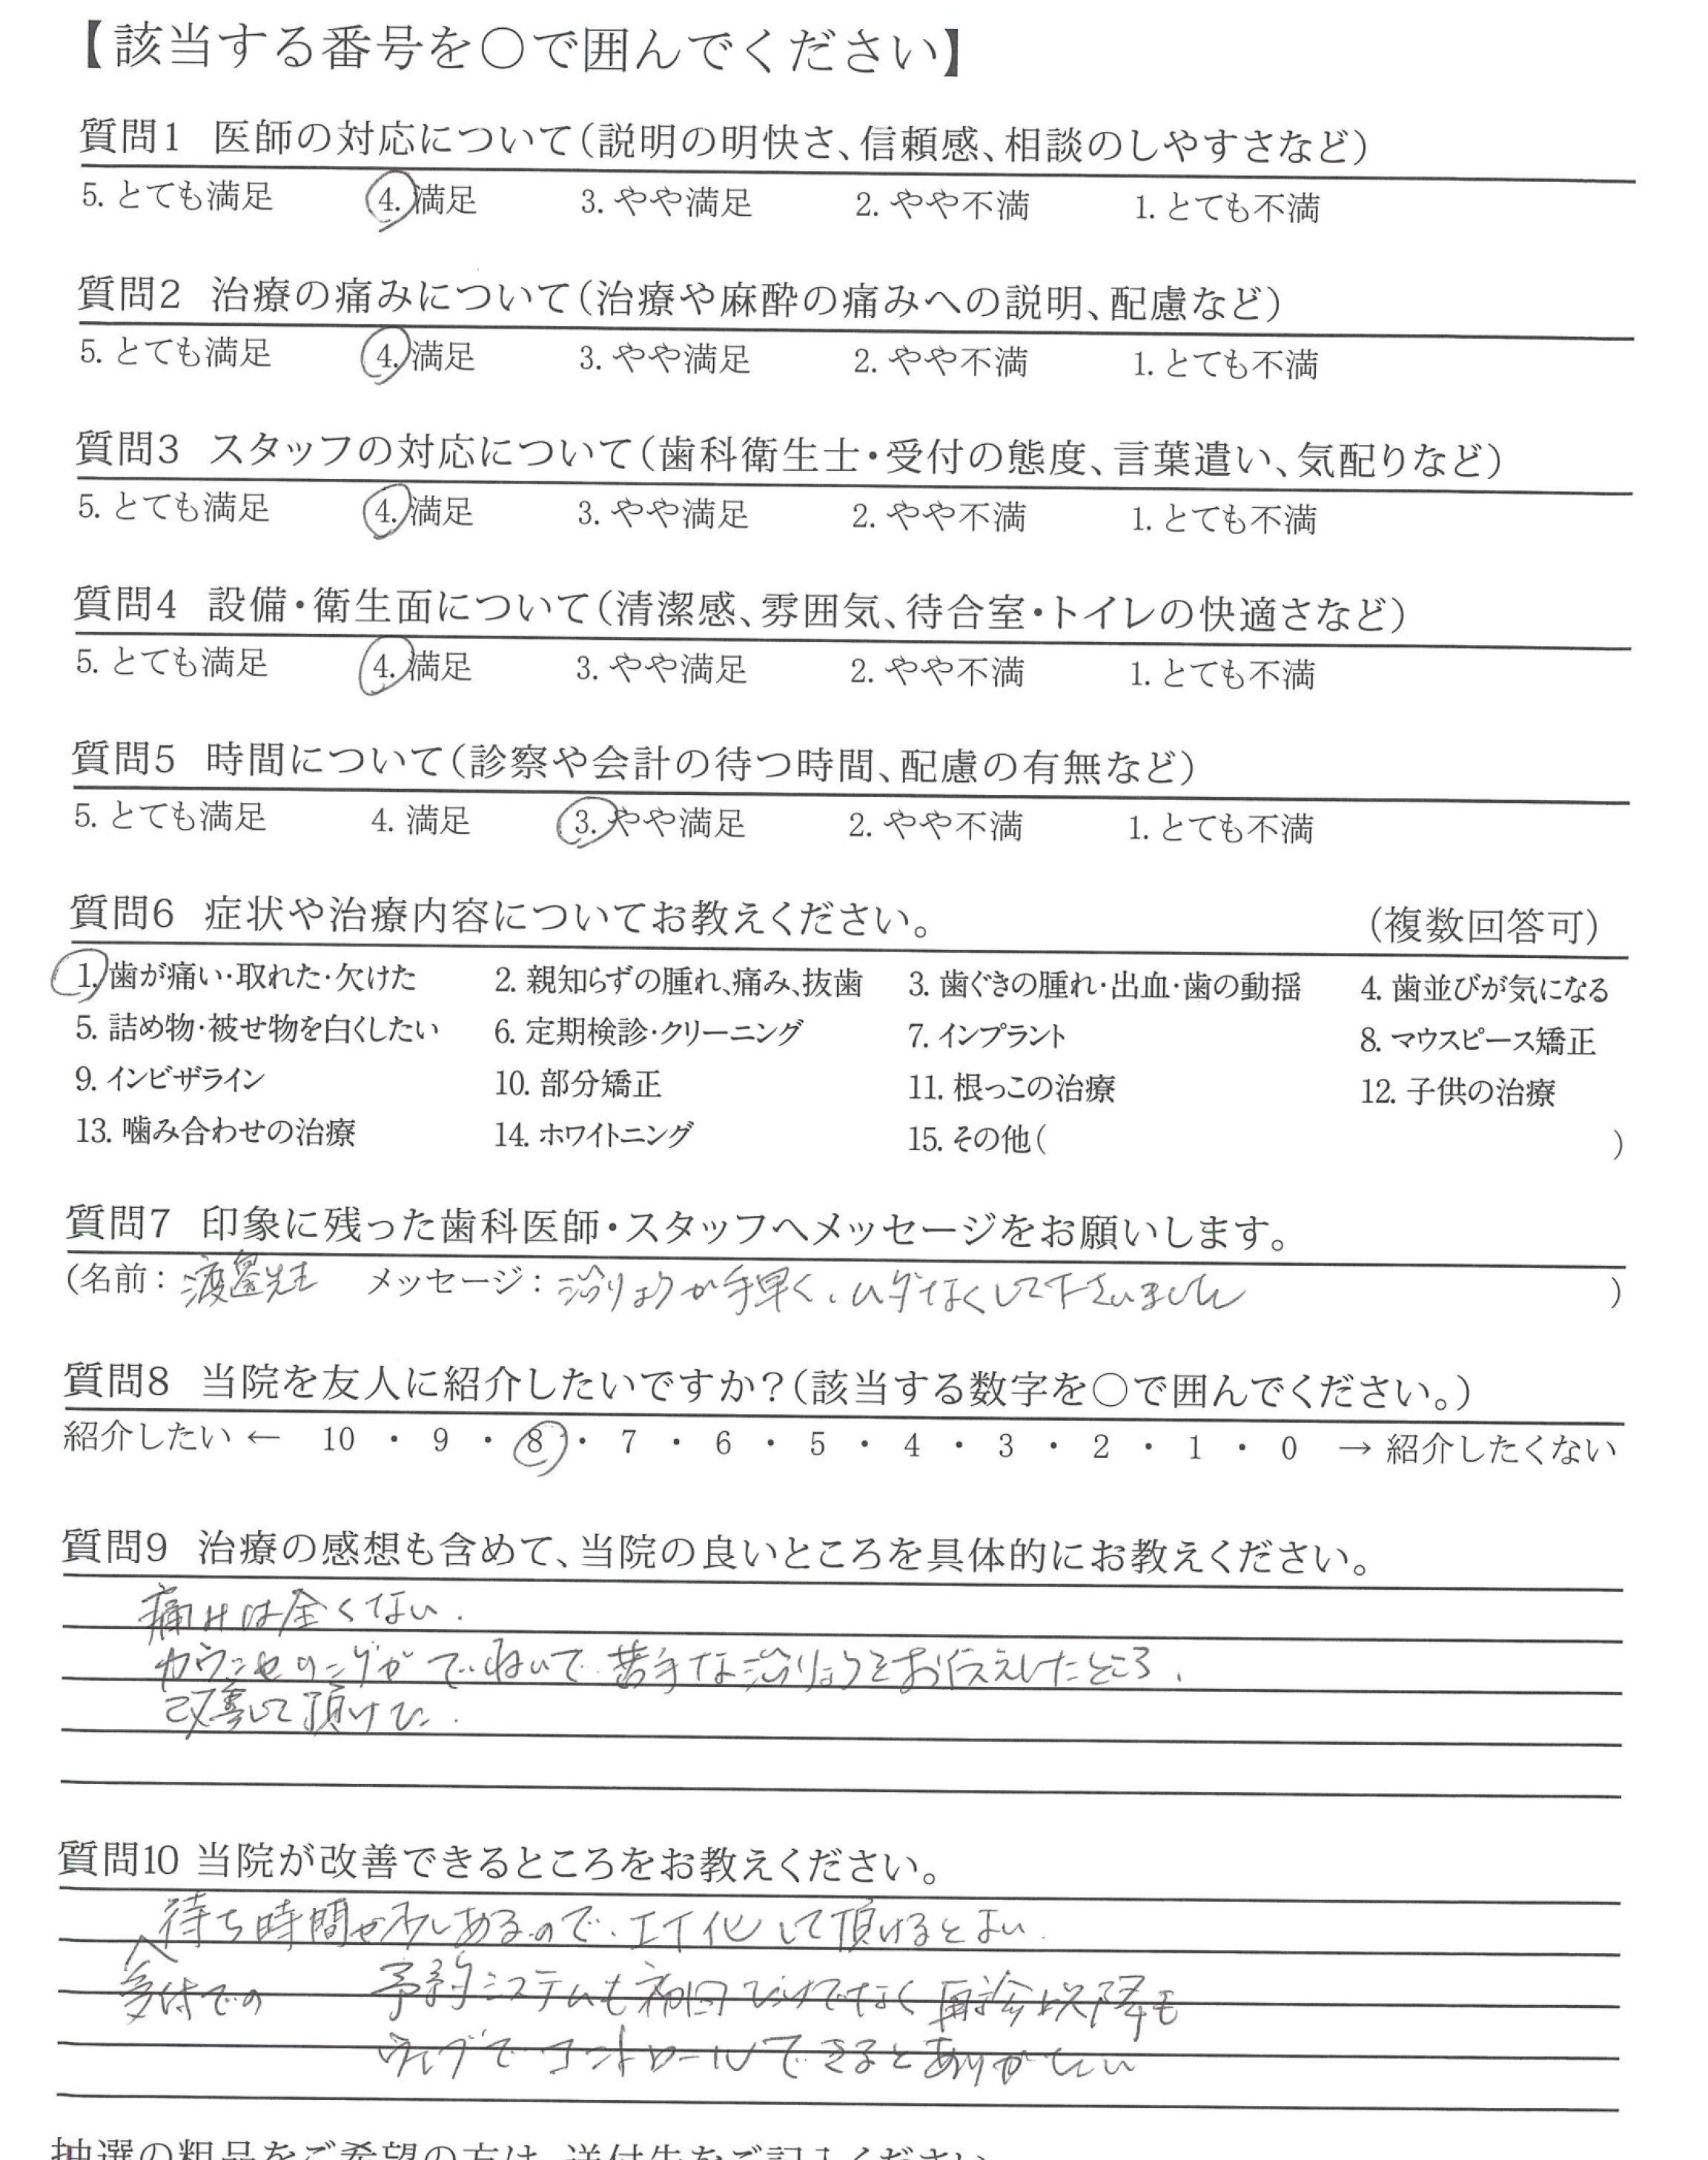 【該当する番号を○で囲んでください】
質問1 医師の対応について(説明の明快さ、信頼感、相談のしやすさなど)
5. とても満足 4. 満足 3. やや満足 2. やや不満 1. とても不満
質問2 治療の痛みについて(治療や麻酔の痛みへの説明、配慮など)
5. とても満足 4. 満足 3. やや満足 2. やや不満 1. とても不満
質問3 スタッフの対応について(歯科衛生士・受付の態度、言葉遣い、気配りなど)
5. とても満足 4. 満足 3. やや満足 2. やや不満 1. とても不満
質問4 設備・衛生面について(清潔感、雰囲気、待合室・トイレの快適さなど)
5. とても満足 4. 満足 3. やや満足 2. やや不満 1. とても不満
質問5 時間について(診察や会計の待つ時間、配慮の有無など)
5. とても満足 4. 満足 3. やや満足 2. やや不満 1. とても不満
質問6 症状や治療内容についてお教えください。 (複数回答可)
1. 歯が痛い・取れた・欠けた 2. 親知らずの腫れ、痛み、抜歯 3. 歯ぐきの腫れ・出血・歯の動揺 4. 歯並びが気になる
5. 詰め物・被せ物を白くしたい 6. 定期検診・クリーニング 7. インプラント 8. マウスピース矯正
9. インビザライン 10. 部分矯正 11. 根っこの治療 12. 子供の治療
13. 噛み合わせの治療 14. ホワイトニング 15. その他( )
質問7 印象に残った歯科医師・スタッフへメッセージをお願いします。
(名前: 渡邉先生 メッセージ: 治りょうが手早く、ムダなくして下さいました )
質問8 当院を友人に紹介したいですか?(該当する数字を○で囲んでください。)
紹介したい ← 10 ・ 9 ・ 8 ・ 7 ・ 6 ・ 5 ・ 4 ・ 3 ・ 2 ・ 1 ・ 0 → 紹介したくない
質問9 治療の感想も含めて、当院の良いところを具体的にお教えください。
痛みは全くない.
カウンセリングがていねいで苦手な治りょうをお伝えしたところ、
改善して頂けた.
質問10 当院が改善できるところをお教えください。
待ち時間が少しあるので、IT化して頂けるとよい
受付での 予約システムも初回だけでなく再診以降も
ウェブでコントロールできるとありがたい
抽選の粗品をご希望の方は、送付先をご記入ください